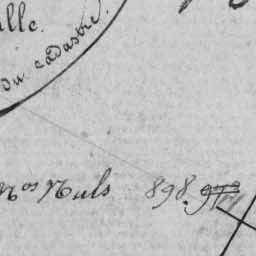 lle.
du cadastre.
Nos Nuls 898.